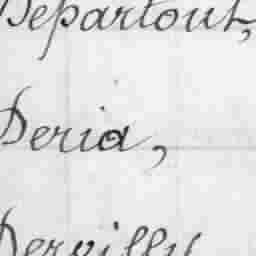 Departout,
Deria,
Dervilly